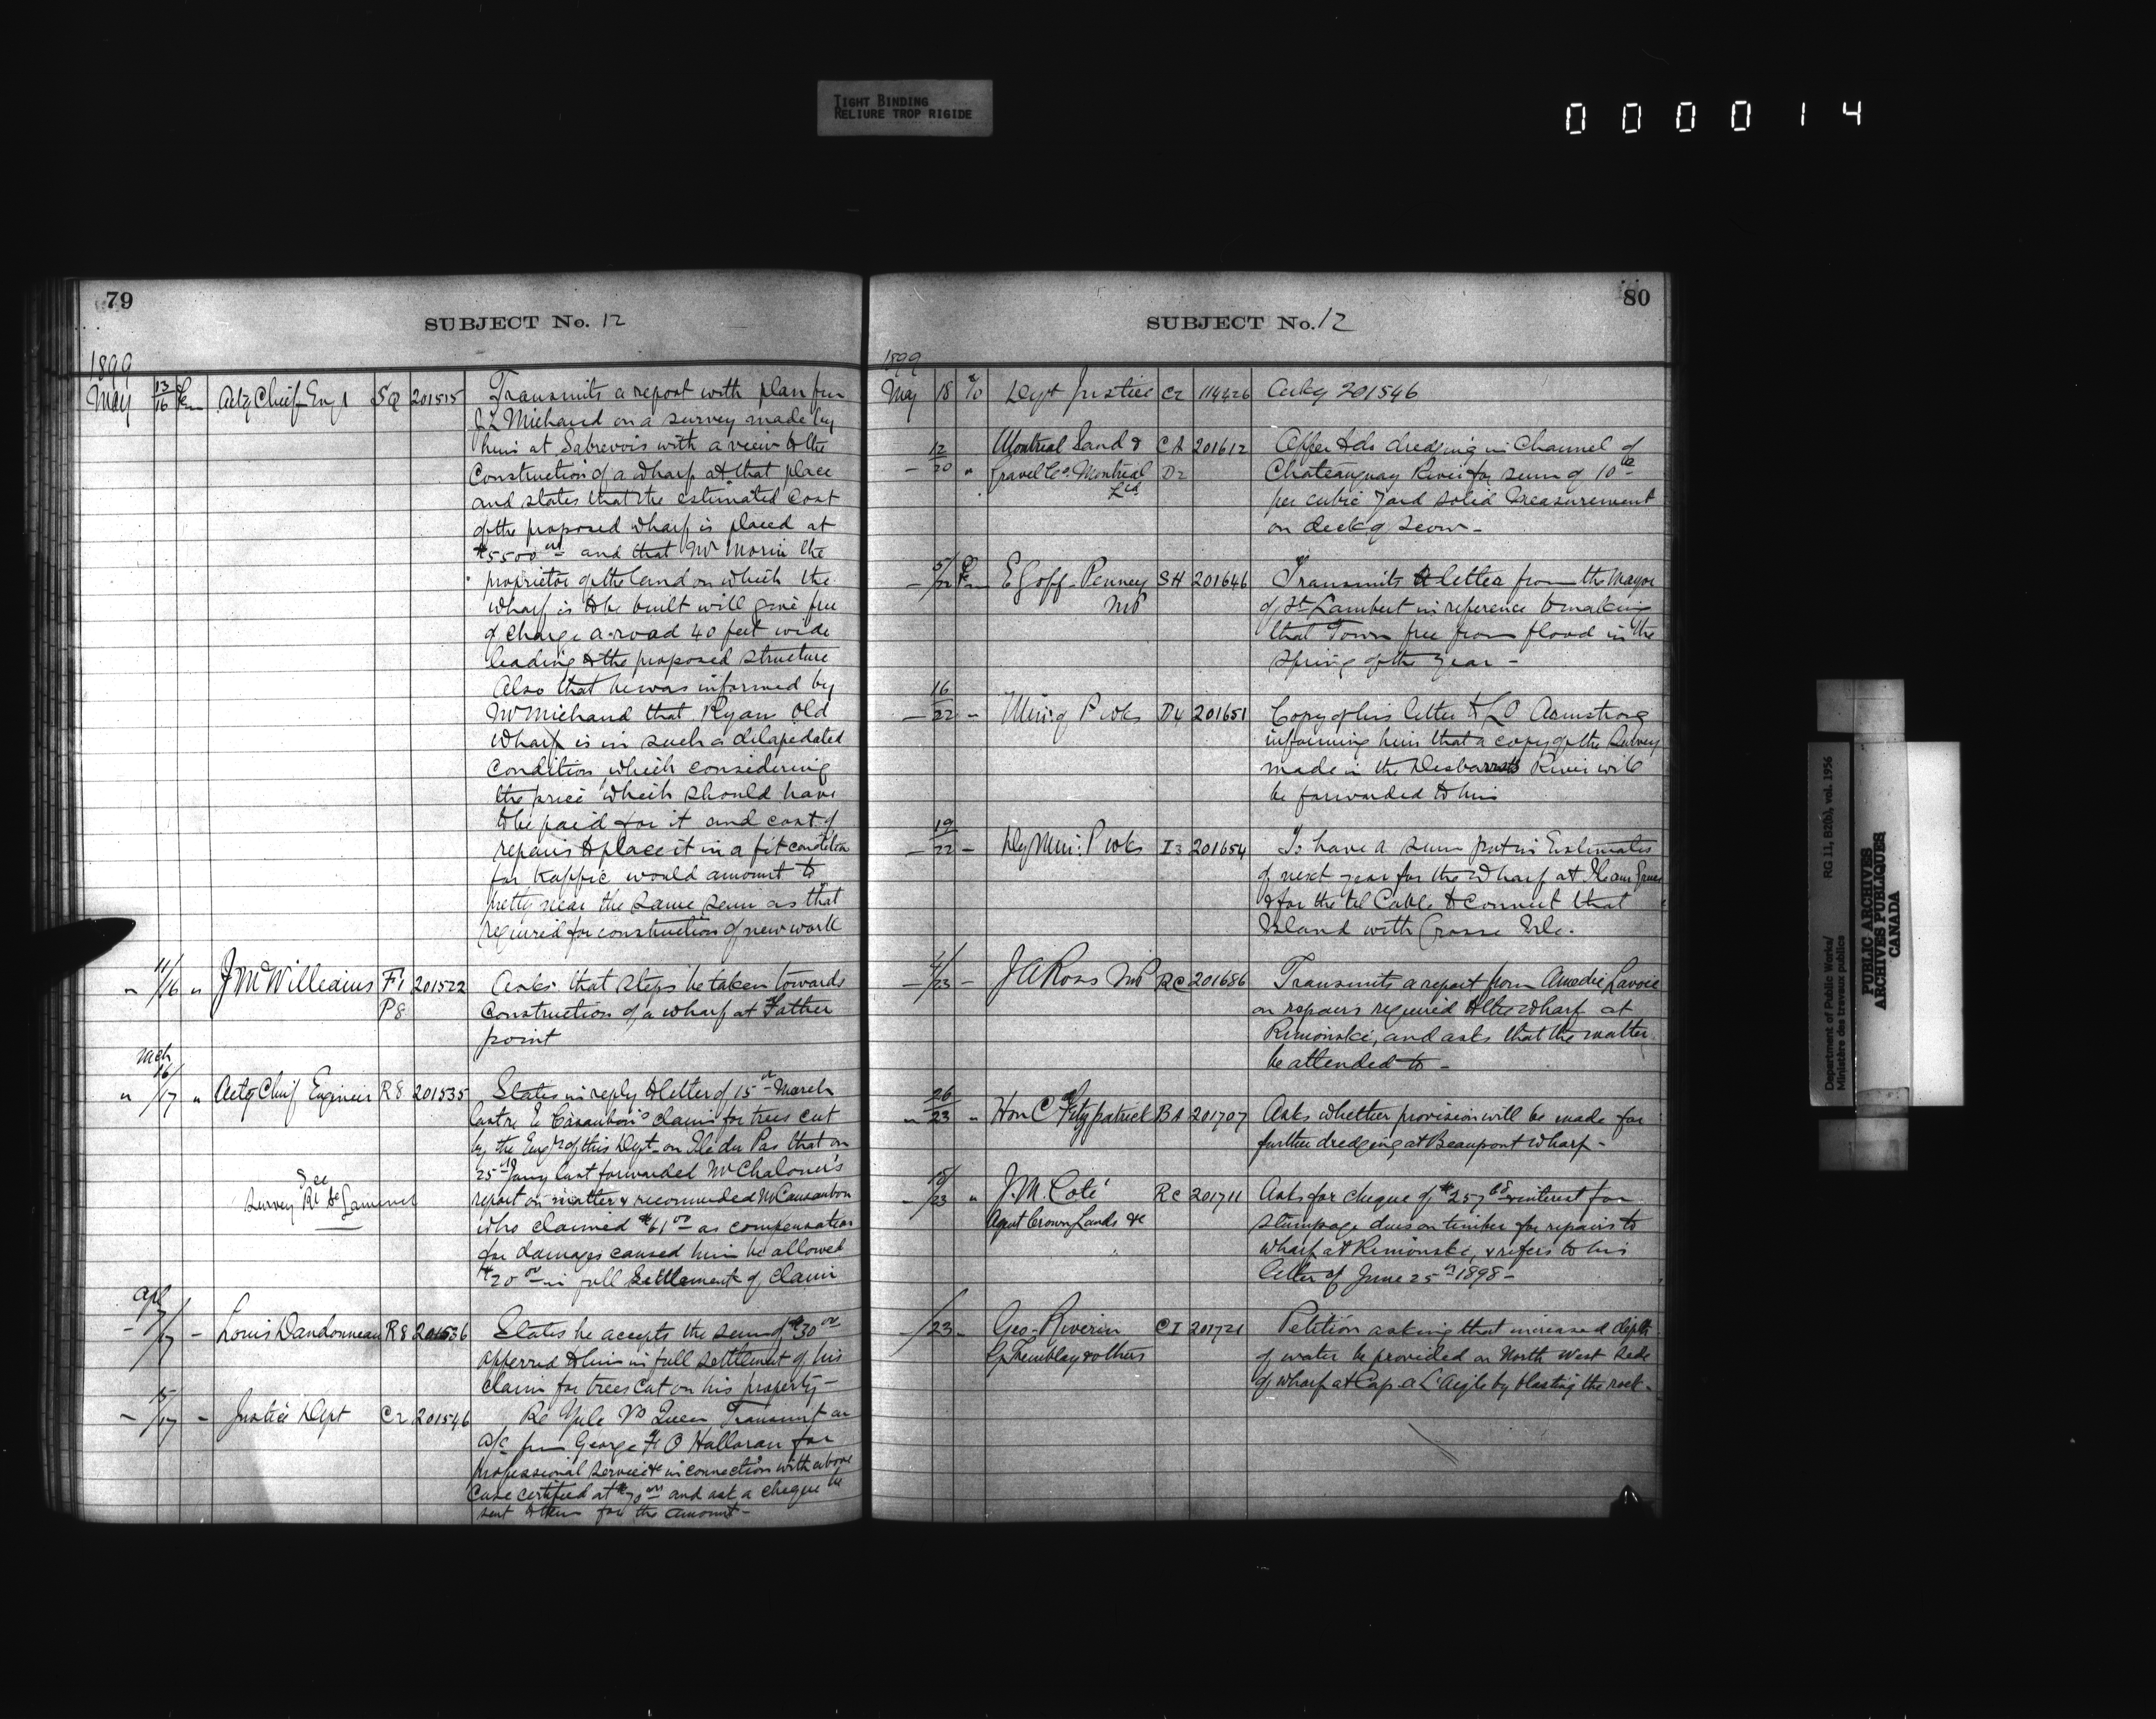 TIGHT BINDING
RELIURE TROP RIGIDE
000014
79
SUBJECT No. 12
1899
May 13/16 Actg Chief Engr SQ 201515 Transmits a report with plan from
J L Michaud on a survey made by
him at Sabrevois with a view to the
Construction of a wharf at that place
and states that the estimated cost
of the proposed wharf is placed at
$5500 00 and that Mr Morin the
proprietor of the land on which the
wharf is to be built will give free
of charge a road 40 feet wide
leading to the proposed structure
Also that he was informed by
Mr Michaud that Ryan Old
Wharf is in such a dilapedated
Condition which considering
the price which should have
to be paid for it and cost of
repairs to place it in a fit condition
for traffic would amount to
pretty near the same sum as that
required for construction of new work
" 11/16 " J McWilliams F1 201522 Asks that steps be taken towards
P8 Construction of a wharf at Father
point
Mch
" 16/17 " Actg Chief Engineer R8 201535 States in reply to letter of 15th March
last re E Casaubon's claim for trees cut
by the Engrs of this Dept on Ile du Pas that on
25th Jany last forwarded Mr Chaloner's
See
report on matter & recommended Mr Causaubon
Survey Rv St Lawrence
who claimed $61 00 as compensation
for damages caused him be allowed
$20 00 in full settlement of claim
Apl
- 7/17 - Louis Dandonneau R8 201536 States he accepts the sum of $30 00
offerred to him in full settlement of his
claim for trees cut on his property -
- 15/17 - Justice Dept C2 201546 Re Yule Vs Queen Transmit an
a/c from George F O'Halloran for
professional services in connection with above
Case certified at $70 00 and ask a cheque be
sent to them for the amount -
80
SUBJECT No. 12
1899
May 18 % Dept Justice C2 114426 Ackg 201546
- 12/20 " Montreal Sand & CA 201612 Offer to do dredging in Channel of
Gravel Co. Montreal D2 Chateauguay River for sum of 10 cts
Ltd per cubic yard solid measurement
on deck of scow -
- 5/22 E Goff-Penney SH 201646 Transmits letter from the Mayor
MP of St Lambert in reference to making
that Town free from flood in the
spring of the year -
- 16/22 " Min: of P wks D4 201651 Copy of his letter to L O Armstrong
informing him that a copy of the Survey
made in the Desbarats River will
be forwarded to him
- 19/22 - Dy Min: P wks I3 201654 To have a sum put in Estimates
of next year for the Wharf at Ile aux Grues
& for the tel Cable to connect that
Island with Grosse Isle.
- 4/23 - J A Ross MP RC 201686 Transmits a report from Amedie Lavoie
on repairs required to the wharf at
Rimouski, and asks that the matter
be attended to -
" 26/23 " Hon C Fitzpatrick BA 201707 Asks whether provision will be made for
further dredging at Beauport wharf -
- 18/23 " J. M. Coté RC 201711 Asks for cheque of $257 68 & interest for
Agent Crown Lands &c stumpage dues on timber for repairs to
wharf at Rimouski, & refers to his
letter of June 25th 1898 -
- /23 - Geo. Riverin CI 201721 Petition asking that increased depth
Tremblay & others of water be provided on North West side
of wharf at Cap a L'Aigle by blasting the rock -
Department of Public Works/
Ministère des travaux publics
RG 11, B2(b), vol. 1956
PUBLIC ARCHIVES
ARCHIVES PUBLIQUES
CANADA